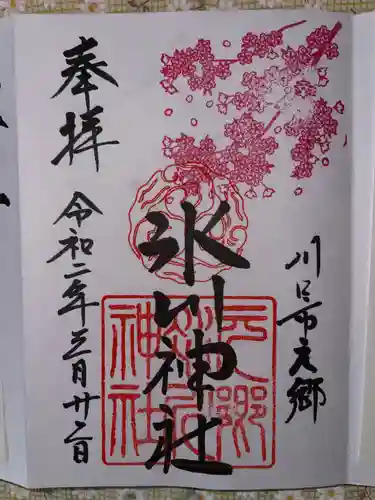 川口市元郷
氷川神社
奉拝
令和二年三月廿二日
元郷
氷川
神社